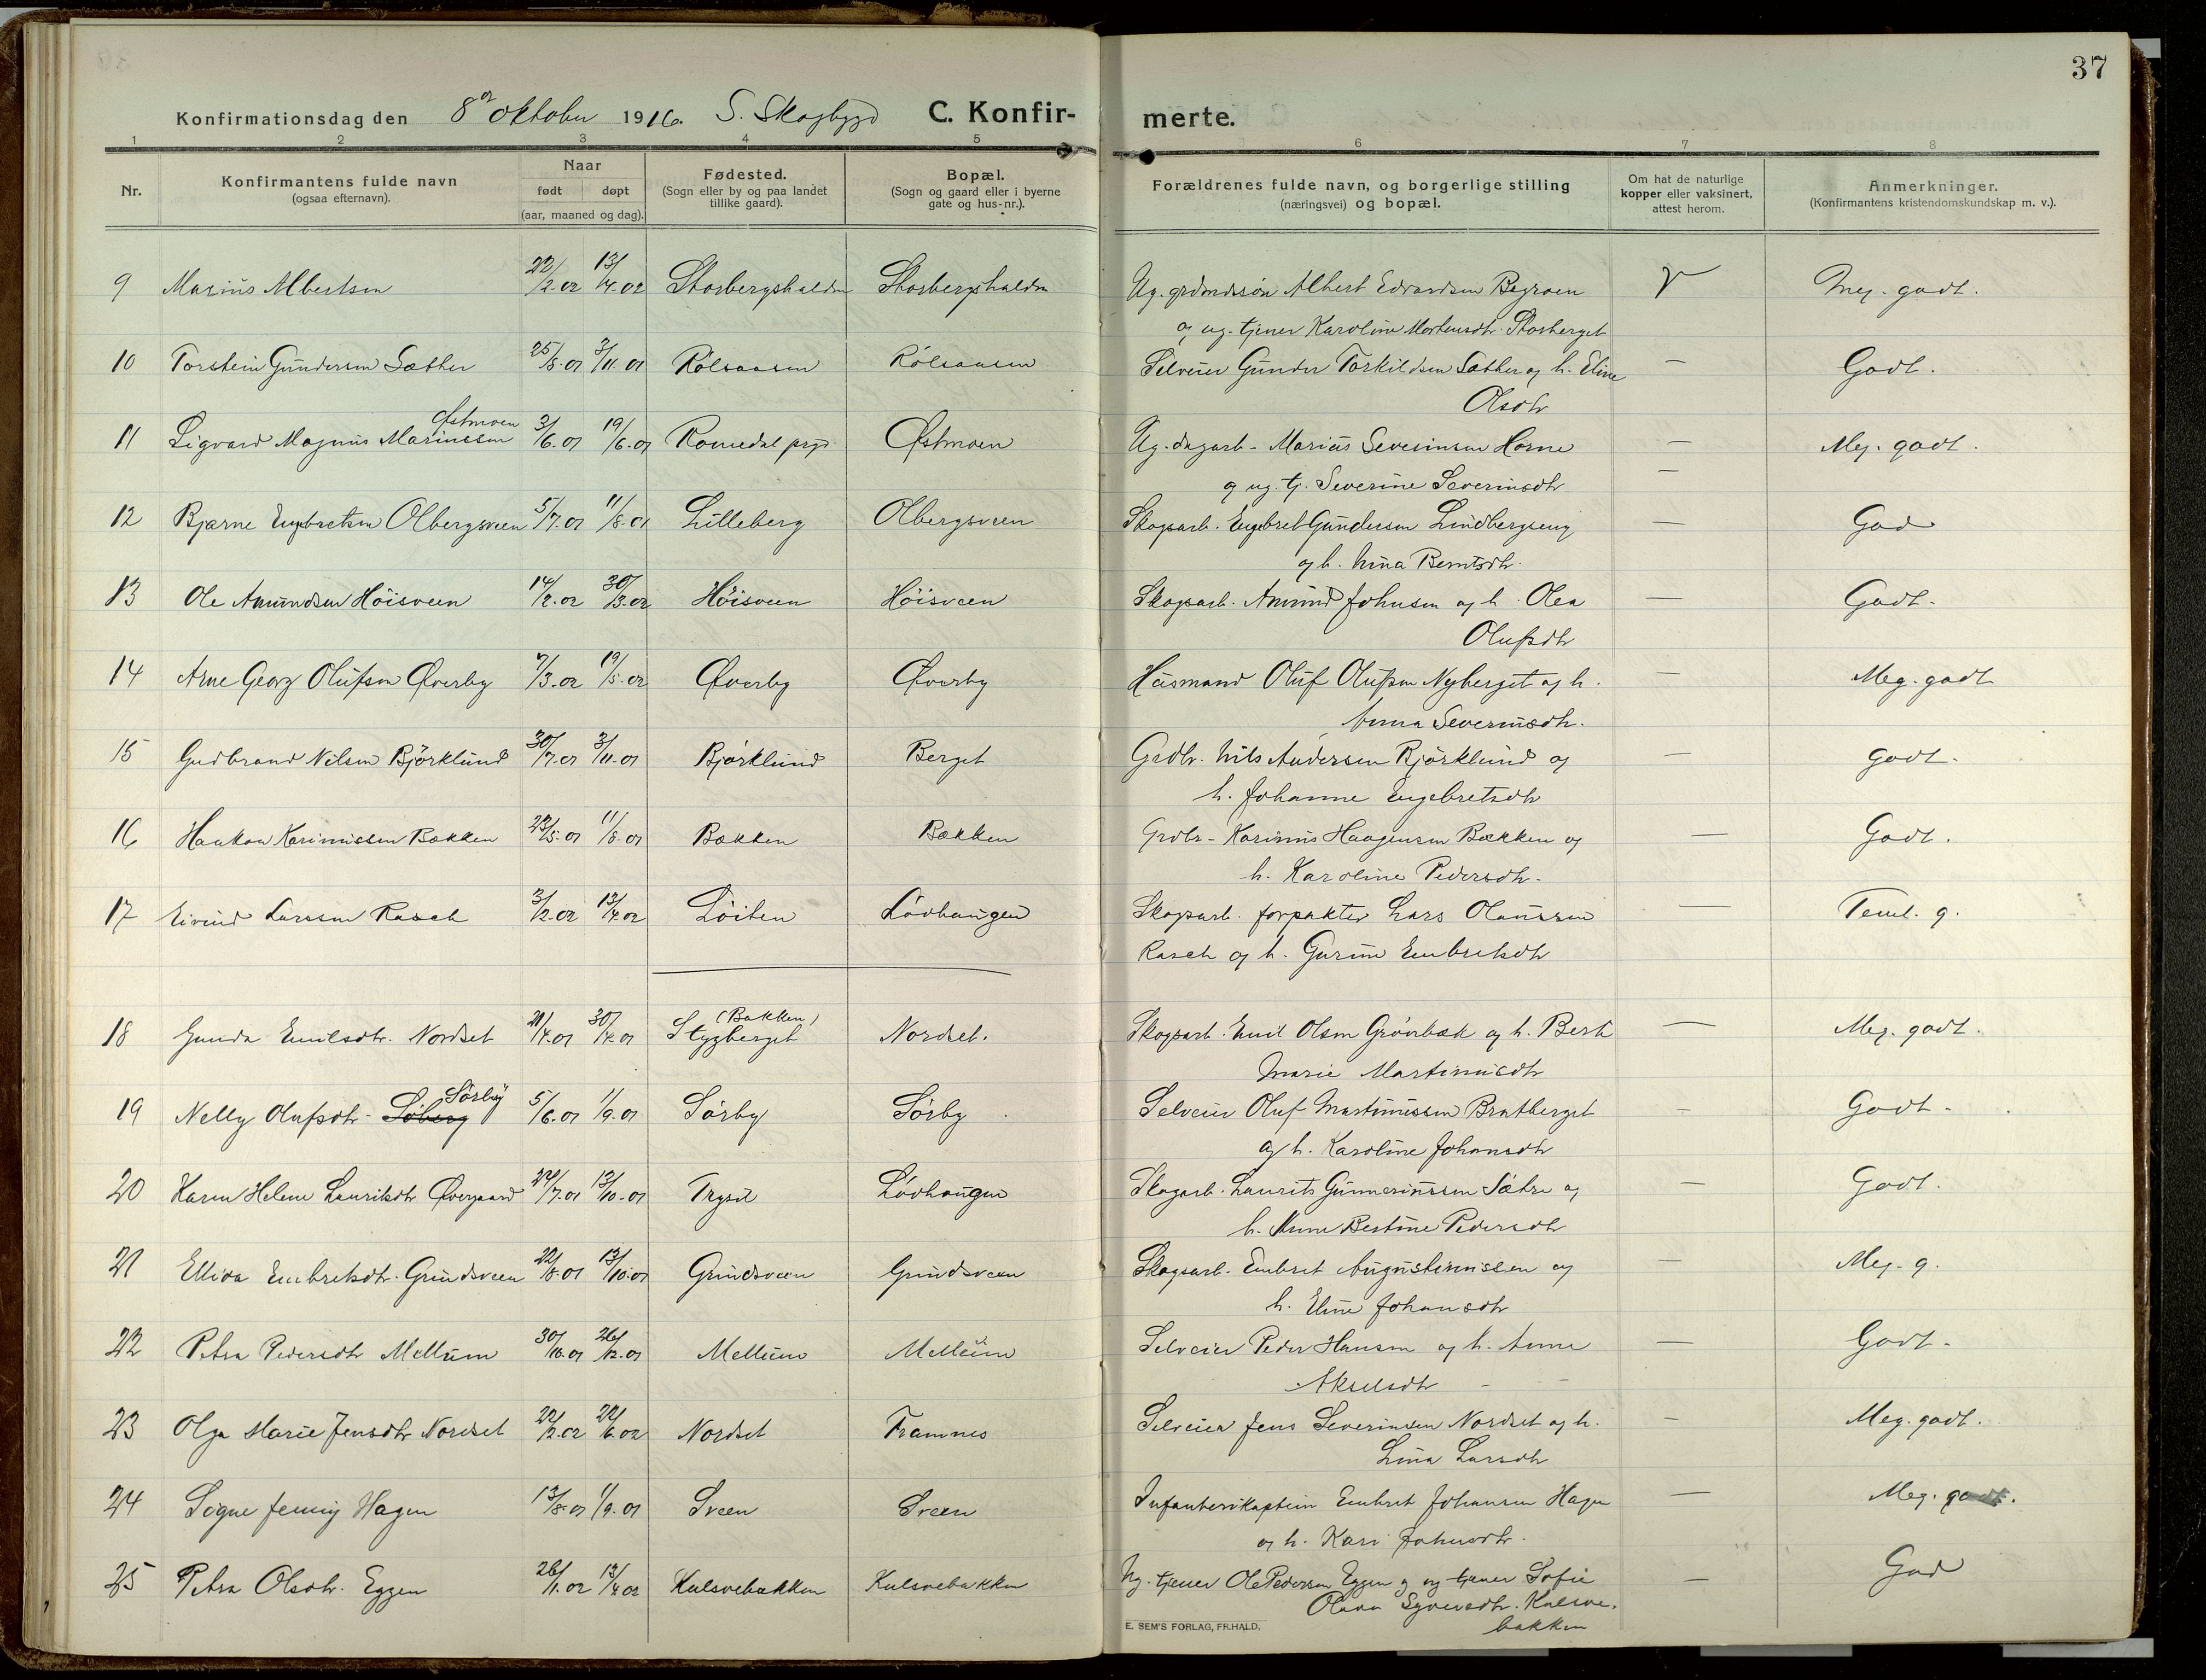 37
Konfirmationsdag den 8 oktober 1916. S. Skogbygd C. Konfir- merte.
1 2 3 4 5 6 7 8
Nr.
Konfirmantens fulde navn
(ogsaa efternavn).
Naar
født døpt
(aar, maaned og dag).
Fødested.
(Sogn eller by og paa landet
tillike gaard).
Bopæl.
(Sogn og gaard eller i byerne
gate og hus-nr.).
Forældrenes fulde navn, og borgerlige stilling
(næringsvei) og bopæl.
Om hat de naturlige
kopper eller vaksinert,
attest herom.
Anmerkninger.
(Konfirmantens kristendomskundskap m. v.).
9 Marius Albertsen 22/2.02 13/4.02 Storbergshalden Storbergshalden Ug. grdmdssøn Albert Edvardsen Begroen V Meg. godt.
og ug. tjener Karoline Mortensdtr. Storberget
10 Torstein Gundersen Sæther 25/8.01 3/11.01 Rólsaasen Rólsaasen Selveier Gunder Torkildsen Sæther og h. Eline — Godt.
Olsdtr
Østmoen
11 Sigvard Magnus Mariussen 3/6.01 19/6.01 Romedal prgj Østmoen Ug. dagarb. Marius Severinsen Horne — Meg. godt.
og ug. tj. Severine Severinsdtr —
12 Bjarne Engebretsen Olbergsveen 5/7.01 11/8.01 Lilleberg Olbergsveen Skogsarb. Engebret Gundersen Lindbergseng — God
og h. Nina Berntsdtr.
13 Ole Amundsen Höisveen 14/2.02 30/3.02 Höisveen Höisveen Skogsarb. Amund Johnsen og h. Olea — Godt.
Olufsdtr
14 Arne Georg Olufsen Øverby 7/3.02 19/5.02 Øverby Øverby Husmand Oluf Olufsen Nyberget og h. — Meg. godt
Anna Severinsdtr.
15 Gudbrand Nilsen Björklund 30/7.01 3/11.01 Björklund Berget Grdbr. Nils Andersen Björklund og — godt.
h. Johanne Engebretsdtr
16 Haakon Karinussen Bækken 23/5.01 11/8.01 Bækken Bækken Grdbr. Karinus Haagensen Bækken og — Godt.
h. Karoline Pedersdtr.
17 Eivind Larssen Rasch 3/2.02 13/4.02 Löiten Lövhaugen Skogsarb. forpakter Lars Olaussen — Teml. g.
Rasch og h. Gurine Embretsdtr
(Bakken)
18 Gunda Emilsdtr. Nordset 21/4.01 30/4.01 Stygberget Nordset. Skogsarb. Emil Olsen Grönbæk og h. Berte — Meg. godt.
Marie Martinusdtr
Sörby
19 Nelly Olufsdtr. Söberg 5/6.01 1/9.01 Sörby Sörby Selveier Oluf Martinussen Bratberget — Godt.
og h. Karoline Johansdtr
20 Karen Helene Lauritsdtr Øvergaard 24/7.01 13/10.01 Trysil Lövhaugen Skogarb. Laurits Gunnerinssen Sætre og — Godt.
h. Anne Bertine Pedersdtr
21 Ellida Embretsdtr. Grundsveen 22/8.01 13/10.01 Grundsveen Grundsveen Skogsarb. Embret Augustinussen og — Meg. g.
h. Eline Johansdtr
22 Petra Pedersdtr Mellum 30/10.01 26/12.01 Mellum Mellum Selveier Peder Hansen og h. Anne — Godt.
Akselsdtr
23 Olga Marie Jensdtr Nordset 22/2.02 22/6.02 Nordset Framnes Selveier Jens Severinsen Nordset og h. — Meg. godt.
Lina Larsdtr
24 Signe Jenny Hagen 13/8.01 1/9.01 Sveen Sveen Infanterikaptein Embret Johansen Hagen — Meg. godt.
og h. Kari Johnsdtr.
25 Petra Olsdtr. Eggen 26/1.02 13/4.02 Kulsvebakken Kulsvebakken Ug. tjener Ole Pedersen Eggen og ug tjener Sofie — God
Olava Syversdtr. Kulsve-
bakken
E. SEM'S FORLAG, FR.HALD.